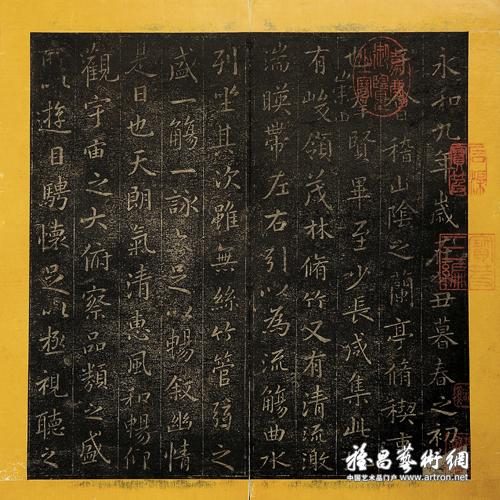 永和九年歲在丑暮春之初
稽山陰之蘭亭脩禊事
也賢畢至少長咸集此
有峻嶺茂林脩竹又有清流激
湍暎帶左右引以為流觴曲水
列坐其次雖無絲竹管弦之
盛一觴一詠足以暢敘幽情
是日也天朗氣清惠風和暢仰
觀宇宙之大俯察品類之盛
所以遊目騁懷足以極視聽之
雅昌藝術網
中国艺术品门户 www.artron.net